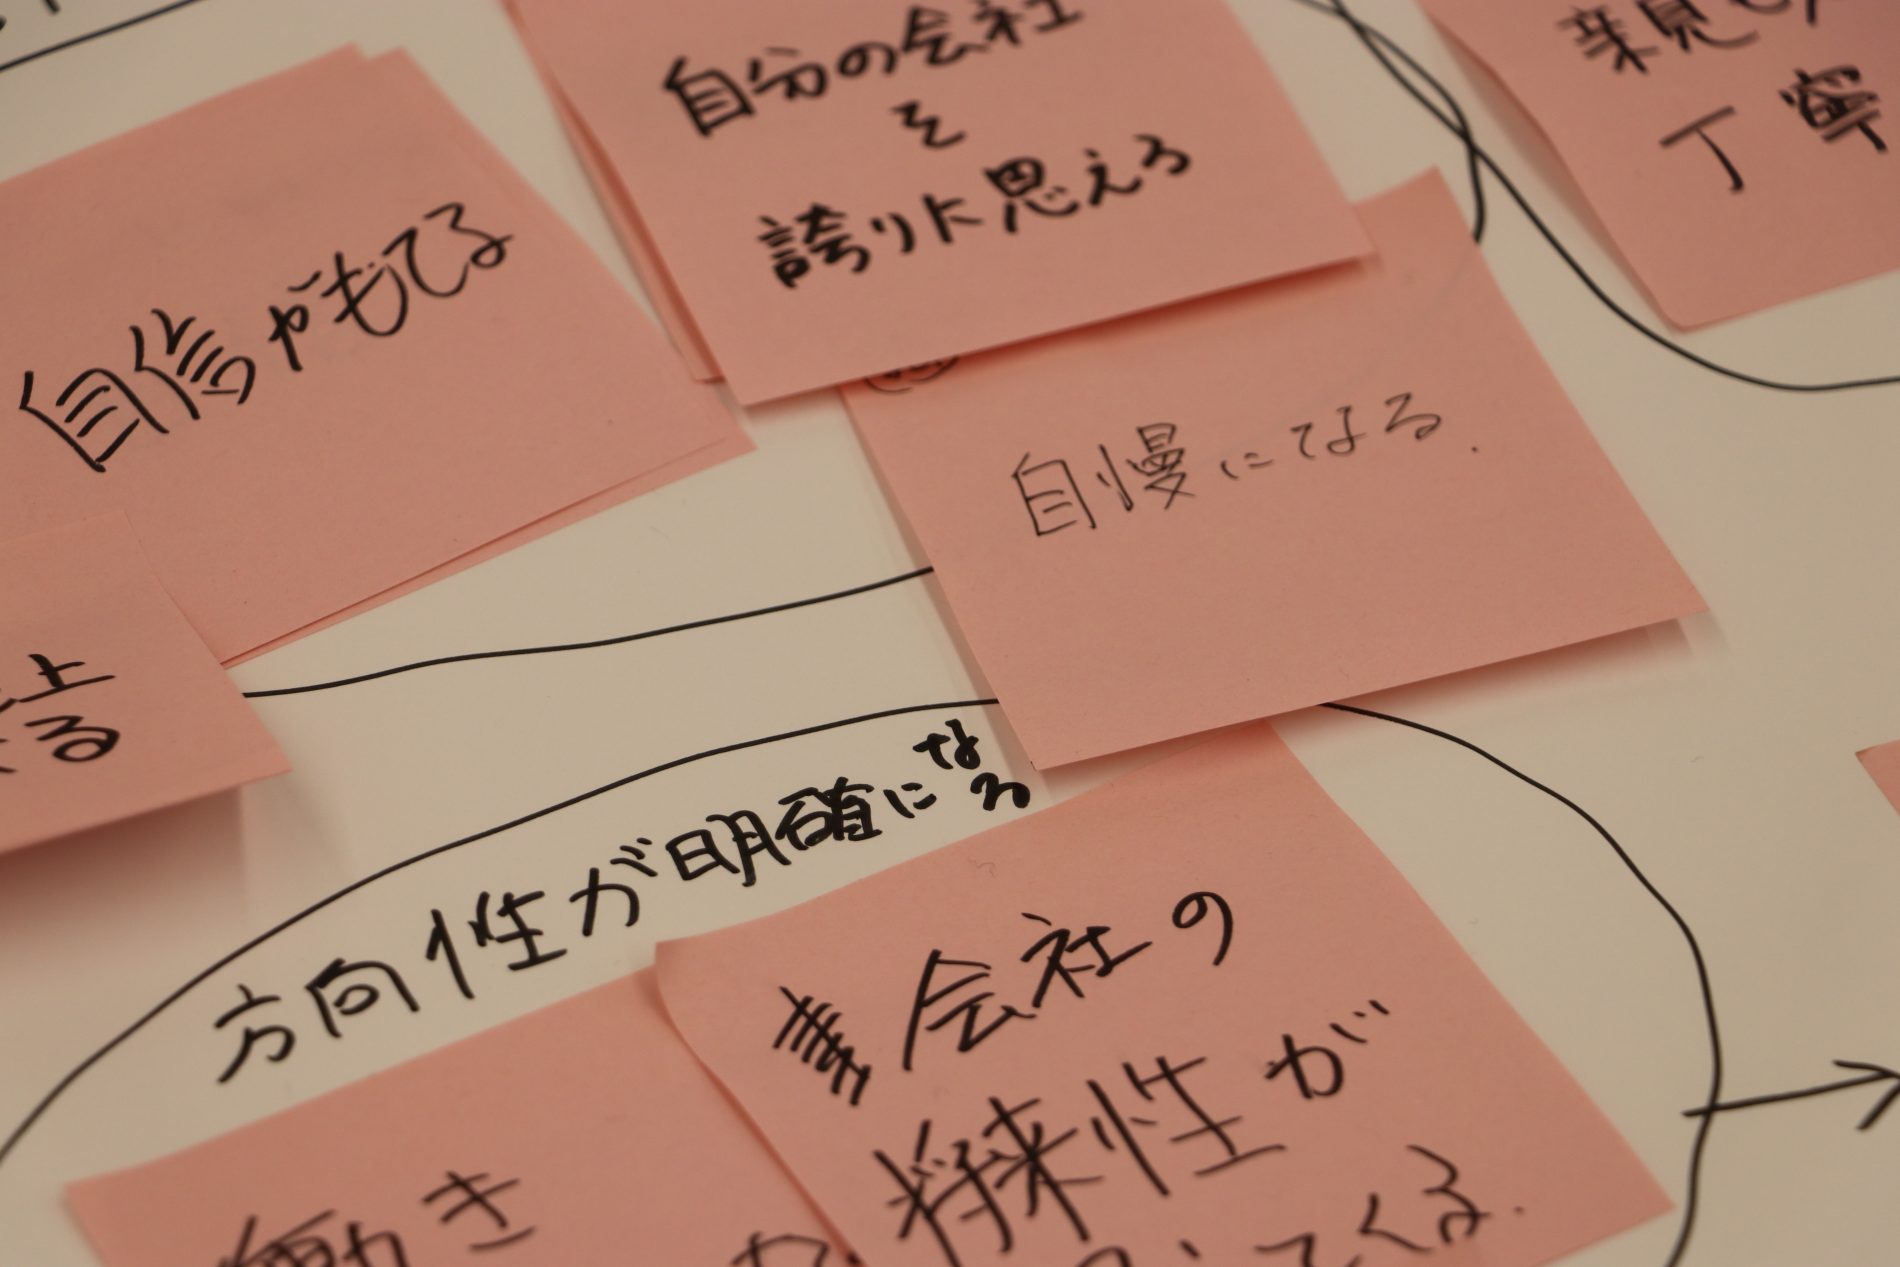 自分の会社
を
誇りに思える
丁寧
自信がもてる
自慢になる.
上
る
方向性が明確になる
会社の
将来性が
てくる.
働き